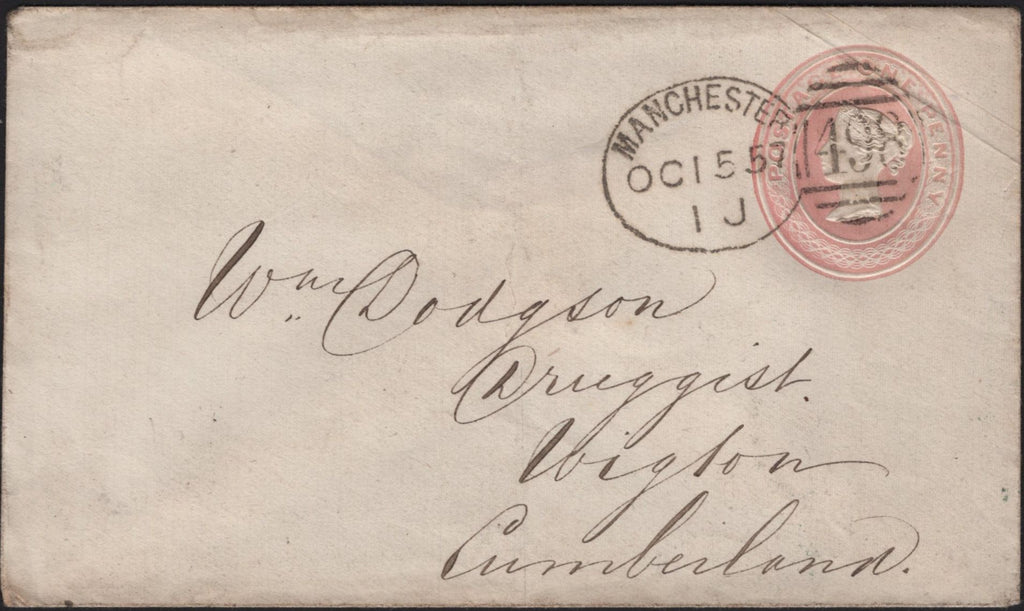 MANCHESTER
OC 15 59
1 J
498
POSTAGE ONE PENNY
Wm Dodgson
Druggist.
Wigton
Cumberland.